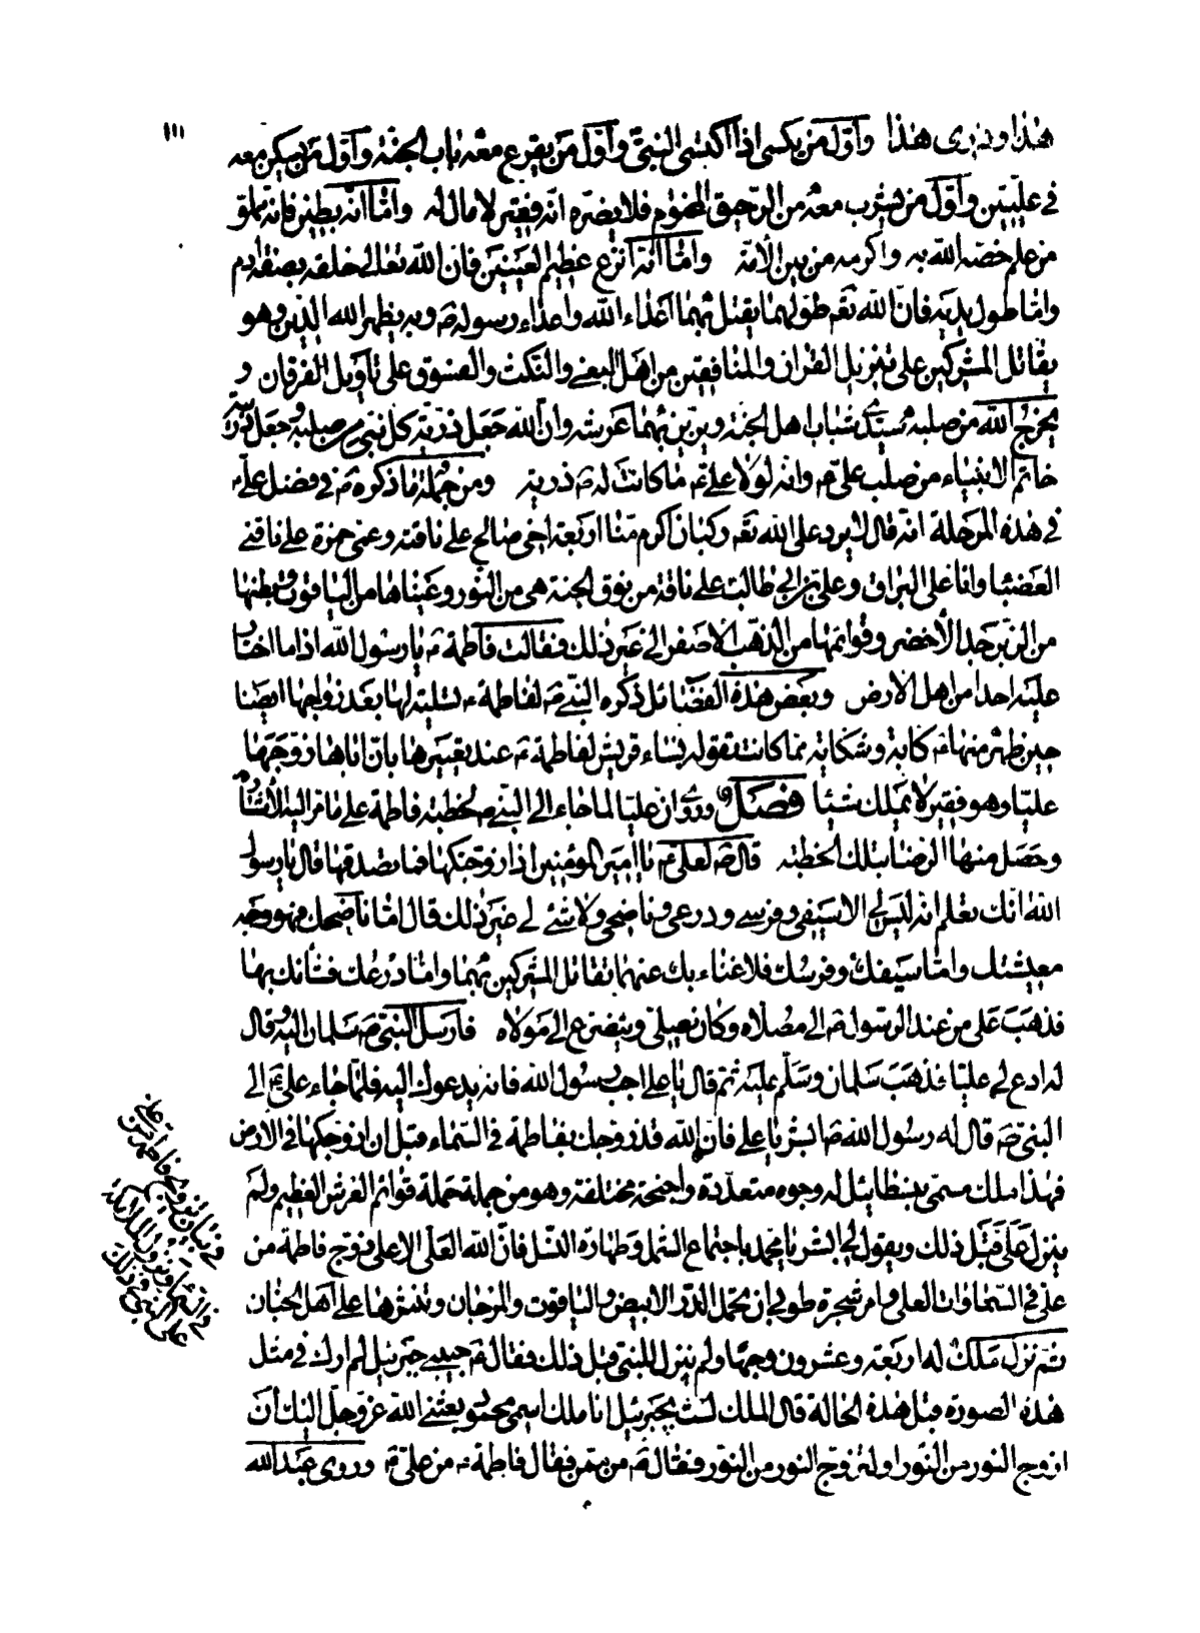 ١١١
هذا ويذرى هذا وأوّل من يكسى اذا اكتسى النبىّ وأوّل من يقرع معه باب الجنّة وأوّل من يسكن معه
فى علّيّين وأوّل من يشرب معه من الرحيق المختوم فلا يضرّه انّه فقير لا مال له وامّا انّه بطين فانّه مملوّ
من علم خصّه الله به واكرمه من بين الأمّة وامّا انّه انزع عظيم العينين فان الله تعالى خلقه بصفة ادم
وامّا طول يديه فانّ الله تعـ طوّلهما يقتل بهما اعداء الله واعداء رسوله صـ وبه يظهر الله الدّين وهو
يقاتل المشركين على تنزيل القران والمنافقين من اهل البغى والنّكث والفسوق على تأويل الفرقان و
يخرج الله من صلبه سيّدى شباب اهل الجنّة ويزيّن بهما عرشه وان الله جعل ذرّيّة كل نبى من صلبه وجعل ذريّة
خاتم الانبياء من صلب علىّ عـ وانه لولا علىّ عـ ما كانت له صـ ذرية ومن جملة ما ذكره صـ فى فضل علىّ عـ
فى هذه المرحلة انّه قال لا يرد على الله تعـ ركبان اكرم منّا اربعة اخى صالح على ناقته وعمى حمزة على ناقتى
العضبا وانا على البراق وعلىّ بن ابى طالب على ناقة من نوق الجنة هى من النور وعيناها من الياقوت وبطنها
من الزبرجد الأخضر وقوائمها من الذّهب الاصفر الى غير ذلك فقالت فاطمة عـ يا رسول الله اذا ما اختار
عليه احدا من اهل الارض وبعض هذه الفضائل ذكره النبىّ صـ لفاطمة عـ تسلية لها بعد زواجها ايضا
حين ظهر منها عـ كابة وشكاية مما كانت تقوله نساء قريش لفاطمة عـ عند تعييرها بان اباها زوّجها
عليّا وهو فقير لا يملك شيئا فصل وروى ان عليا لما جاء الى النبى صـ لخطبة فاطمة على ما مر اليه الأشارة
وحصل منها الرضا بتلك الخطبة قال صـ لعلى عـ يا امير المؤمنين اذا زوّجتكها فما تصدقها قال يا رسول
الله انك تعلم انه ليس لى الا سيفى وفرسى ودرعى وناضحى ولا شئ لى غير ذلك قال امّا ناضحك فهو وجه
معيشتك وامّا سيفك وفرسك فلا غناء بك عنهما تقاتل المشركين بهما وامّا درعك فشأنك بها
فذهب على من عند الرسول صـ الى مصلاه وكان يصلّى ويتضرع الى مولاه فارسل النبى صـ سلمان اليه قال
له ادع لى عليّا فذهب سلمان وسلّم عليه ثم قال يا على اجب رسول الله فانه يدعوك اليه فلمّا جاء على عـ الى
النبى صـ قال له رسول الله صـ ابشر يا على فان الله قد زوّجك بفاطمة فى السّماء قبل ان ازوّجكها فى الارض
فهذا ملك مسمّى بنسطائيل له وجوه متعدّدة واجنحة مختلفة وهو من جملة حملة قوائم العرش العظيم ولم
ينزل علىّ قبل ذلك ويقول لى ابشر يا محمد باجتماع الشمل وطهارة النّسل فانّ الله العلى الاعلى زوّج فاطمة من
على فى السّماوات العلى وامر شجرة طوبى ان تحمل الدّر الابيض والياقوت والمرجان وتنثرها على اهل الجنان
ثم نزل ملك له اربعة وعشرون وجها ولم ينزل للنبى قبل ذلك فقال صـ حبيبى جبرئيل لم ارك فى مثل
هذه الصورة قبل هذه الحالة قال الملك لست بجبرئيل انا ملك اسمى محمود بعثنى الله عزّ وجلّ اليك ان
ازوج النور من النّور او لتزوّج النور من النّور فقال صـ من بمن فقال فاطمة عـ من علىّ عـ وروى عبد الله
فى بيان تزويج فاطمة من على
فى السّماء ونزول الملائكة
على النبى فى ذلك